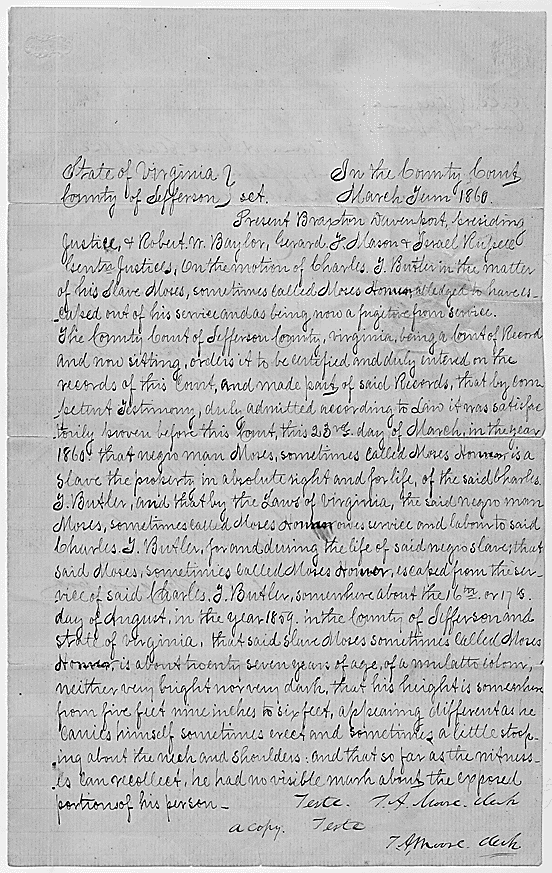 State of Virginia } In the County Court
County of Jefferson } sct. March Term 1860.
Present Braxton Davenport, presiding
Justice, & Robert W. Baylor, Gerard F. Mason & Israel Russell
Gent. Justices, On the motion of Charles T. Butler in the matter
of his Slave Moses, sometimes called Moses Honner alledged to have es-
caped out of his service and as being now a fugitive from service.
The County Court of Jefferson County, Virginia, being a Court of Record
and now sitting, orders it to be certified and duly entered on the
records of this Court, and made part of said Records, that by com
petent Testimony, duly admitted according to Law it was satisfac
torily proven before this Court, this 23rd day of March, in the year
1860. that negro man Moses, sometimes called Moses Honner is a
Slave the property in absolute right and for life, of the said Charles
T. Butler, and that by the Laws of Virginia, the said negro man
Moses, sometimes called Moses Honner owes service and labour to said
Charles T. Butler, for and during the life of said negro slave; that
said Moses, sometimes called Moses Honner, escaped from the ser-
vice of said Charles T. Butler, somewhere about the 16th or 17th
day of August, in the year 1859. in the County of Jefferson and
State of Virginia, that said slave Moses sometimes called Moses
Honner, is about twenty seven years of age, of a mulatto colour,
neither very bright nor very dark, that his height is somewhere
from five feet nine inches to six feet, appearing different as he
carries himself sometimes erect and sometimes a little stoop-
ing about the neck and shoulders: and that so far as the witness-
es can recollect, he had no visible mark about the exposed
portion of his person_ Teste. T. A. Moore. clerk
a copy. Teste
T. A. Moore. clerk